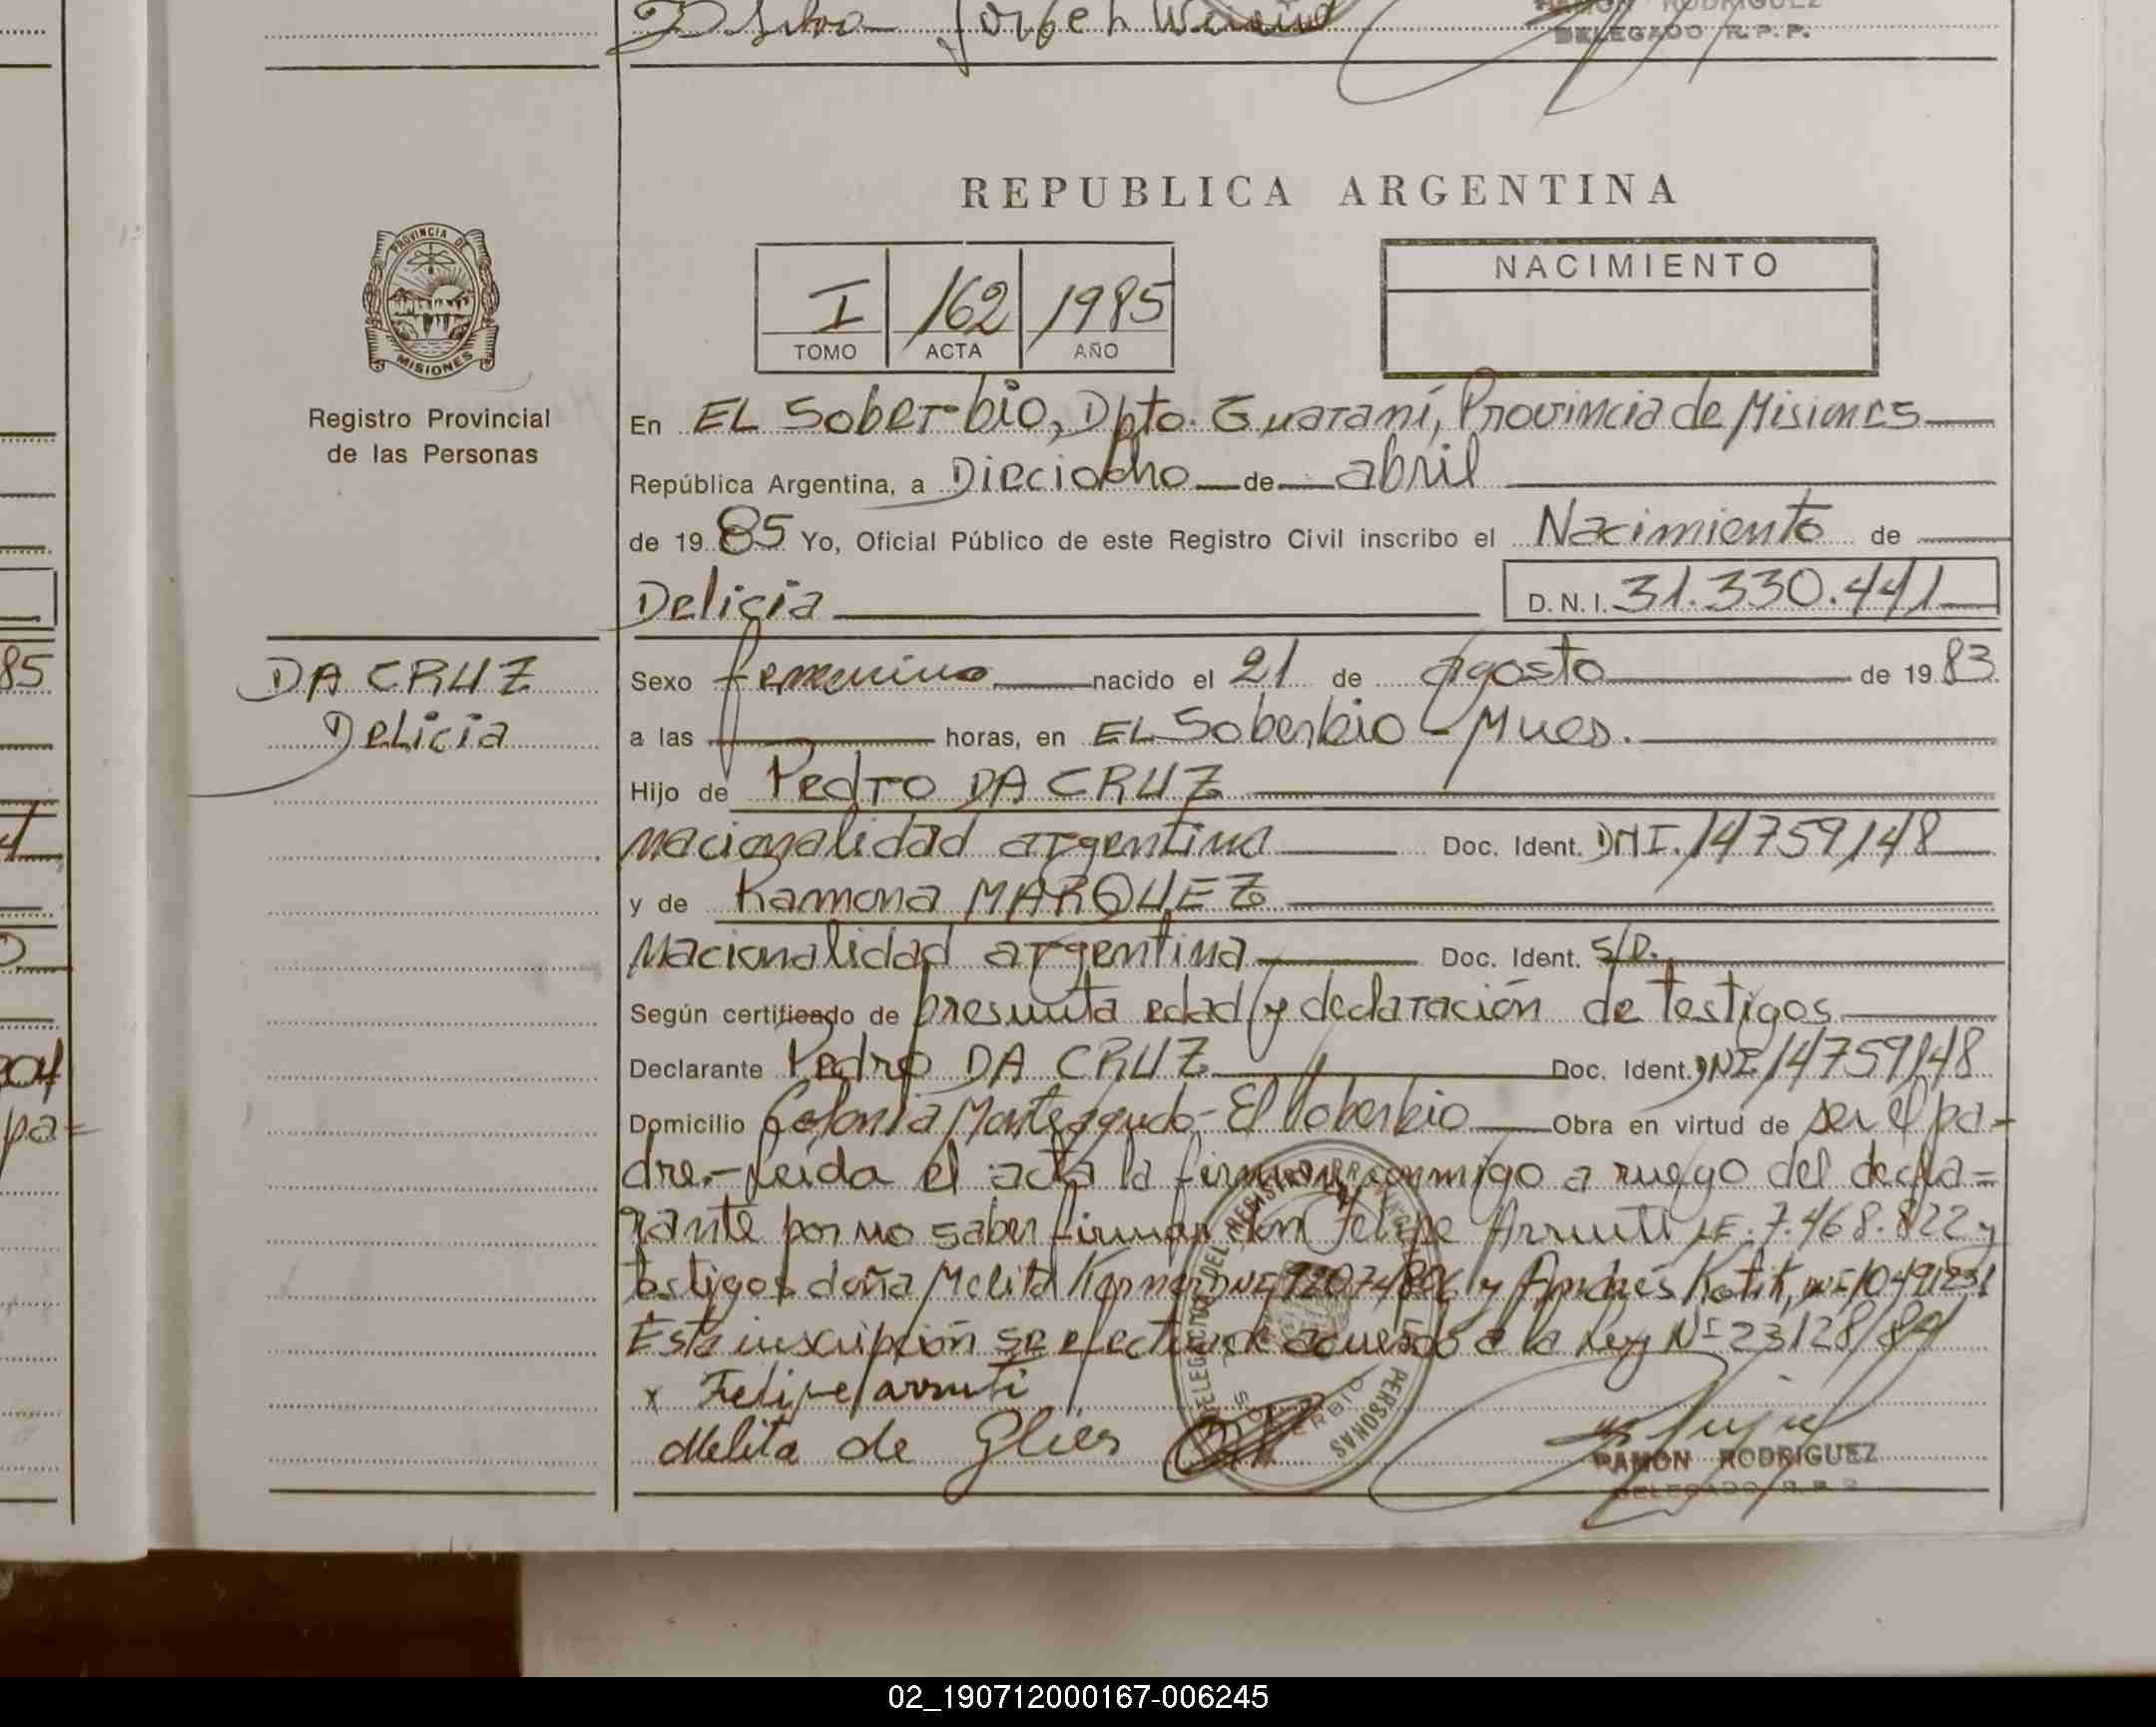 DELEGADO R.P.P.
REPUBLICA ARGENTINA
PROVINCIA DE
MISIONES
Registro Provincial
de las Personas
I 162 1985
TOMO ACTA AÑO
NACIMIENTO
En EL Soberbio, Dpto. Guaraní, Provincia de Misiones
República Argentina, a Dieciocho de abril
de 19 85 Yo, Oficial Público de este Registro Civil inscribo el Nacimiento de
Delicia D.N.I. 31.330.441
DA CRUZ
Delicia
Sexo femenino nacido el 21 de agosto de 19 83
a las horas, en EL Soberbio - Mnes.
Hijo de Pedro DA CRUZ
nacionalidad argentina Doc. Ident. DNI. 14759148
y de Ramona MARQUEZ
Nacionalidad argentina Doc. Ident. S/D.
Según certificado de presunta edad y declaración de testigos
Declarante Pedro DA CRUZ Doc. Ident. DNI 14759148
Domicilio Colonia Monteagudo - El Soberbio Obra en virtud de ser el pa-
dre.- Leida el acta la firman conmigo a ruego del decla=
rante por no saber firmar don Felipe Arruti LE. 7.468.822 y
testigos doña Melita y Andrés
Esta inscripción se efectua de acuerdo a la Ley Nº 23128/84
x Felipe arruti
Melita de Glier
RAMON RODRIGUEZ
DELEGADO R.P.P.
85
pa=
02_190712000167-006245